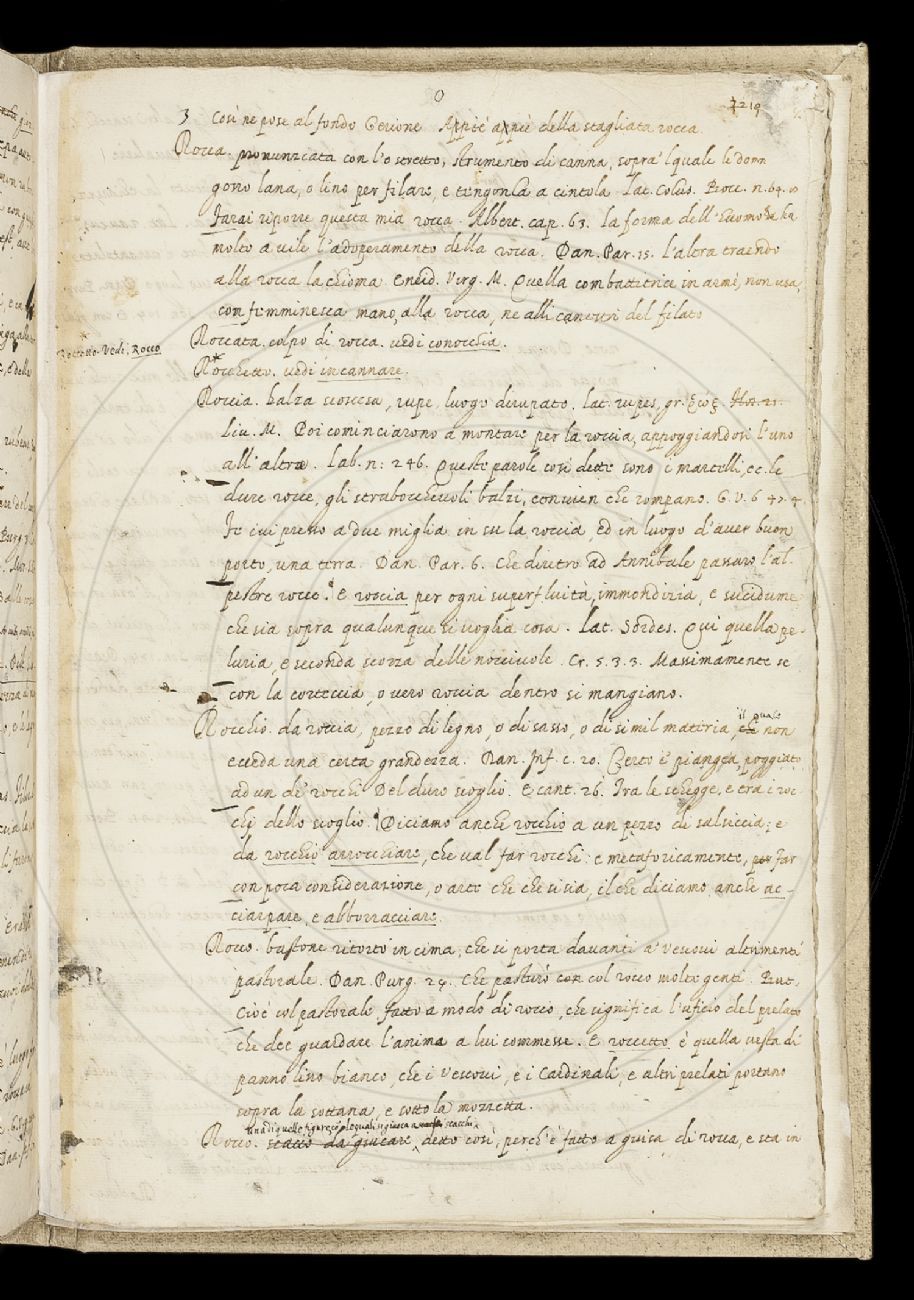 O
1219
3 Così ne pose al fondo Gerione Appiè appiè della stagliata rocca.
Rocca. pronunziata con l'o stretto, strumento di canna, sopra 'l quale le donn
gono lana, o lino per filare, e tengonla a cintola. Lat. Colus. Bocc. n. 64. 10
Farai riporre questa mia rocca. Albert. cap. 63. la forma dell'huomo ha
molto a vile l'adoperamento della rocca. Dan. Par. 15. l'altra traendo
alla rocca la chioma. Eneid. Virg. M. Quella combattitrice in armi, non usa,
con femminesca mano, alla rocca, ne alli canestri del filato
Roccata. colpo di rocca. vedi conocchia.
Rocchetto. Vedi. Rocco
Rocchetto. vedi incannare.
Roccia. balza scoscesa, rupe, luogo dirupato. lat. rupes, gr.
Liv. M. Poi cominciarono a montare per la roccia, appoggiandosi l'uno
all'altro. Lab. n: 246. queste parole così dette sono i martelli, ec. le
dure rocce, gli straboccheuoli balzi, convien che rompano. G. V. 6 47. 4
Je ivi presso a due miglia in su la roccia, ed in luogo d'aver buon
porto, una terra. Dan. Par. 6. Che diretro ad Annibale passaro l'al-
pestre rocce. E roccia per ogni superfluità, immondizia, e sucidume
che sia sopra qualunque si voglia cosa. Lat. Sordes. Qui quella pe-
luria e seconda scorza delle nocciuole. Cr. 5. 3. 3. Massimamente se
con la corteccia, overo roccia dentro si mangiano.
Rocchio. da roccia, pezzo di legno, o di sasso, o di simil materia, che il quale non
ecceda una certa grandezza. Dan. Inf. c. 20. Certo i' piangea, poggiato
ad un de' rocchi Del duro scoglio. E cant. 26. Tra le schegge, e tra i roc-
chi dello scoglio. Diciamo anche rocchio a un pezzo di salsiccia; e
da rocchio arrocchiare, che val far rocchi: e metaforicamente, per far
con poca considerazione, o arte che che si sia, il che diciamo anche ac-
ciarpare, e abborracciare.
Rocco. bastone ritorto in cima, che si porta davanti a' Vescovi altrimenti
pastorale. Dan. Purg. 24. Che pasturò con col rocco molte genti. But.
Cioè col pastorale fatto a modo di rocco, che significa l'uficio del prelato
che dee guardare l'anime a lui commesse. E roccetto, è quella vesta di
panno lino bianco, che i Vescovi, e i Cardinali, e altri prelati portano
sopra la sottana, e sotto la mozzetta.
una di quelle figure con le quali si giuoca a scacchi
Rocco. scacco da giucare, detto così, perch'è fatto a guisa di rocca, e sta in